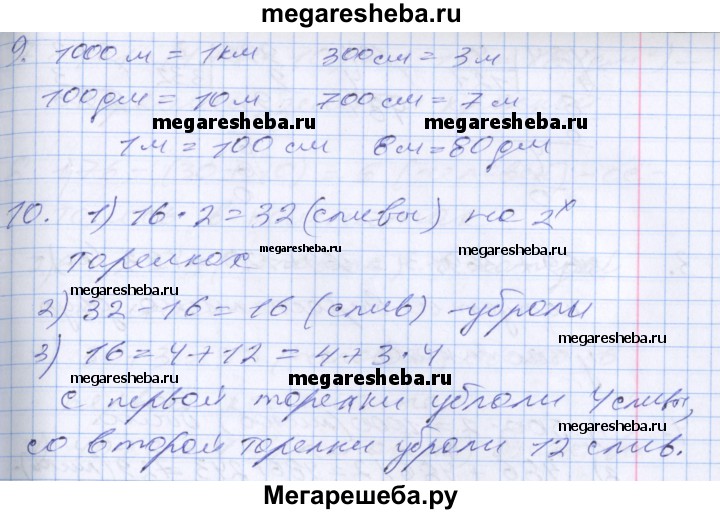 megaresheba.ru
9. 1000 м = 1 км 300 см = 3 м
100 дм = 10 м 700 см = 7 м
megaresheba.ru megaresheba.ru
1 м = 100 см 8 м = 80 дм
10. 1) 16 · 2 = 32 (сливы) на 2х
megaresheba.ru megaresheba.ru
тарелках
megaresheba.ru
2) 32 - 16 = 16 (слив) - убрали
megaresheba.ru
3) 16 = 4 + 12 = 4 + 3 · 4
megaresheba.ru megaresheba.ru
с первой тарелки убрали 4 сливы,
megaresheba.ru
со второй тарелки убрали 12 слив.
Мегарешеба.ру